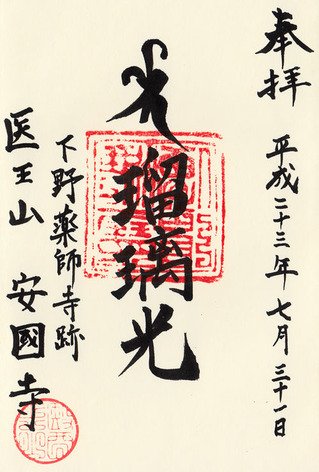 奉拝 平成二十三年七月三十一日
瑠璃光
下野薬師寺跡
医王山 安國寺